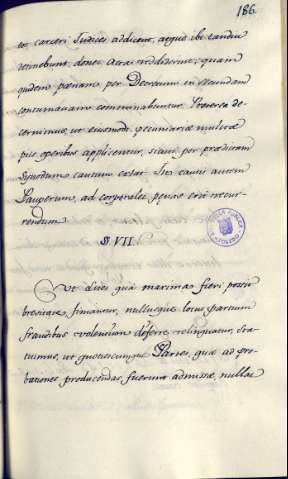 186.
tes, carceri Iudices addicent, æque ibi tandiu
detinebunt, donec acta reddiderint; quam
quidem pœnam per Decretum in secundam
contumaciam comminabuntur. Præterea de-
cernimus, ut eiusmodi pecuniariæ mulctæ
piis operibus applicentur, sicuti per prædictam
Synodum cautum extat. In causis autem
Pauperum, ad corporales penas erit recur-
rendum
§ VII.
Ut lites quà maxima fieri possit
brevitate finiantur, nullusque locus partium
fraudibus volentium differre relinquatur, sta-
tuimus, ut quotiescumque Partes, quæ ad pro-
bationes producendas fuerint admissæ, nullas